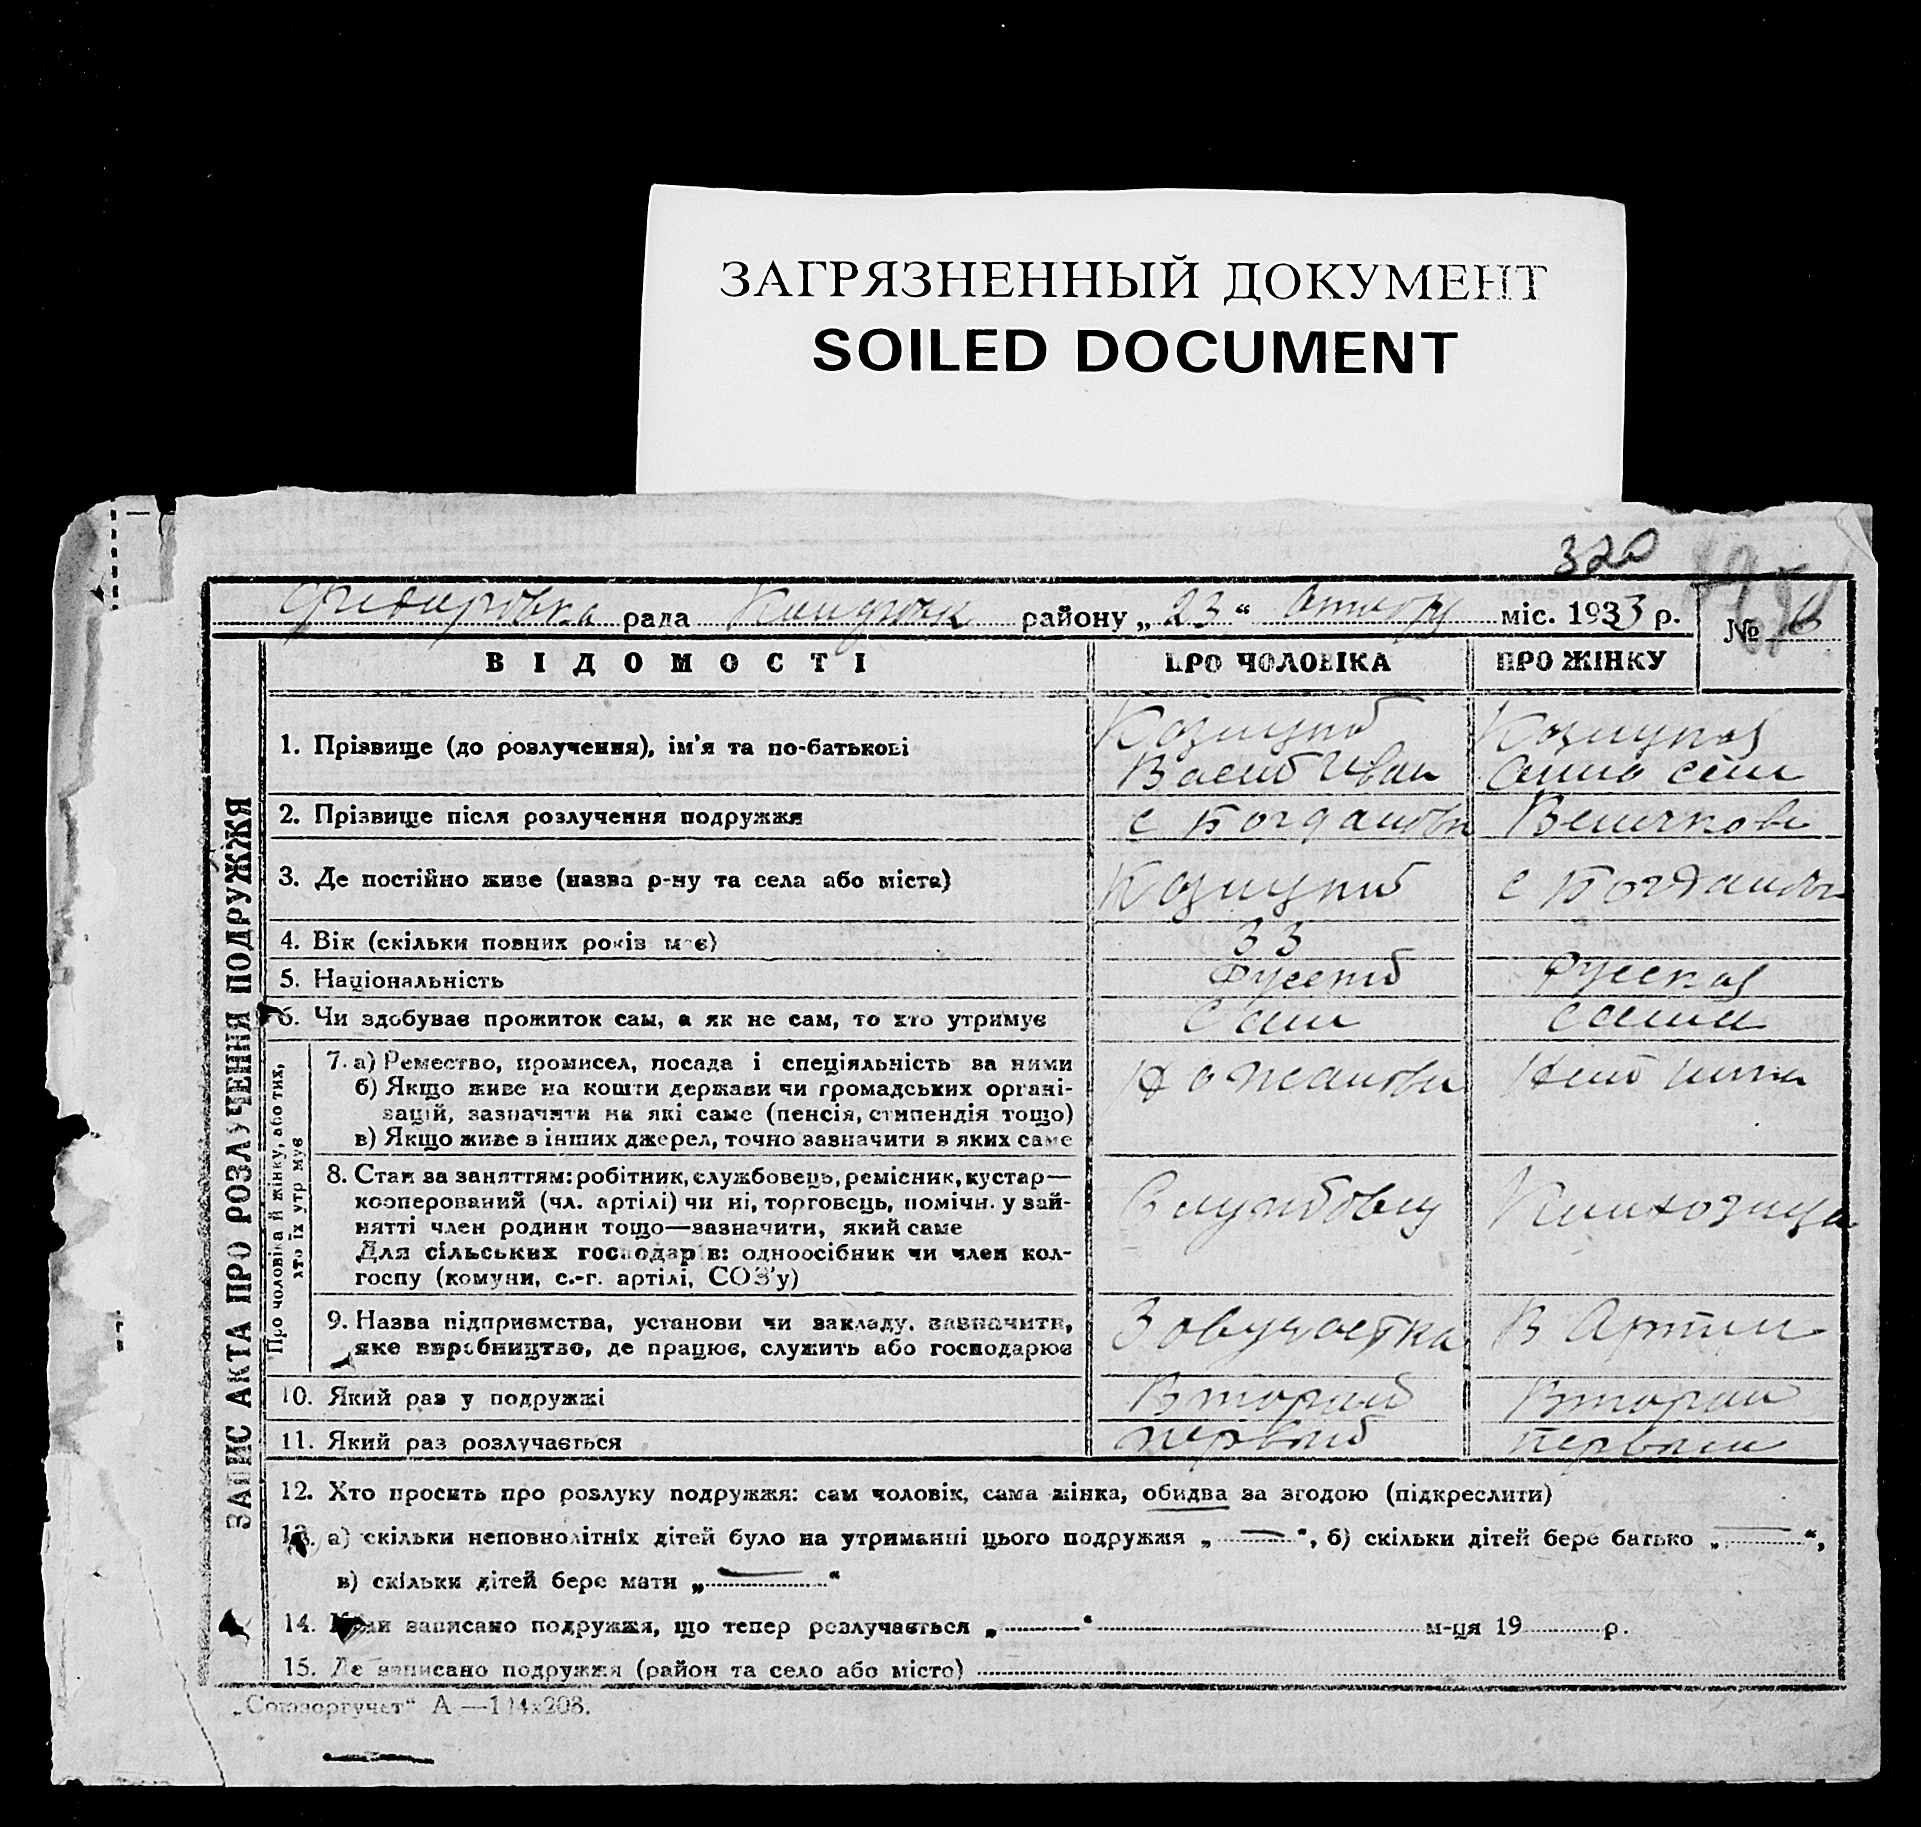 ЗАГРЯЗНЕННЫЙ ДОКУМЕНТ
SOILED DOCUMENT
320
рада району „23“ міс. 1933 р.
№ 6
ВІДОМОСТІ ПРО ЧОЛОВІКА ПРО ЖІНКУ
ЗАПИС АКТА ПРО РОЗЛУЧЕННЯ ПОДРУЖЖЯ
1. Прізвище (до розлучення), ім'я та по-батькові
Козицкий Козицкая
Васил Иван Анна Сем
2. Прізвище після розлучення подружжя с Богдановк
3. Де постійно живе (назва р-ну та села або міста) Козицкий с Богдановк
4. Вік (скільки повних років має) 33
5. Національність Русский Русская
6. Чи здобуває прожиток сам, а як не сам, то хто утримує Сам Сама
Про чоловіка й жінку, або тих, хто їх утримує
7. а) Ремество, промисел, посада і спеціяльність за ними
б) Якщо живе на кошти держави чи громадських органі-
зацій, зазначити на які саме (пенсія, стипендія тощо)
в) Якщо живе з інших джерел, точно зазначити в яких саме
8. Стан за заняттям: робітник, службовець, ремісник, кустар—
кооперований (чл. артілі) чи ні, торговець, помічн. у зай-
нятті член родини тощо—зазначити, який саме
Для сільських господарів: одноосібник чи член кол-
госпу (комуни, с.-г. артілі, СОЗ'у)
Службовец Колхозница
9. Назва підприємства, установи чи закладу, зазначити,
яке виробництво, де працює, служить або господарює
В Артили
10. Який раз у подружжі Второй Второй
11. Який раз розлучається Первый Первый
12. Хто просить про розлуку подружжя: сам чоловік, сама жінка, обидва за згодою (підкреслити)
13. а) скільки неповнолітніх дітей було на утриманні цього подружжя „—“, б) скільки дітей бере батько „—“,
в) скільки дітей бере мати „—“
14. Коли записано подружжя, що тепер розлучається „ “ м-ця 19 р.
15. Де записано подружжя (район та село або місто)
„Союзоргучет“ А —194х208.